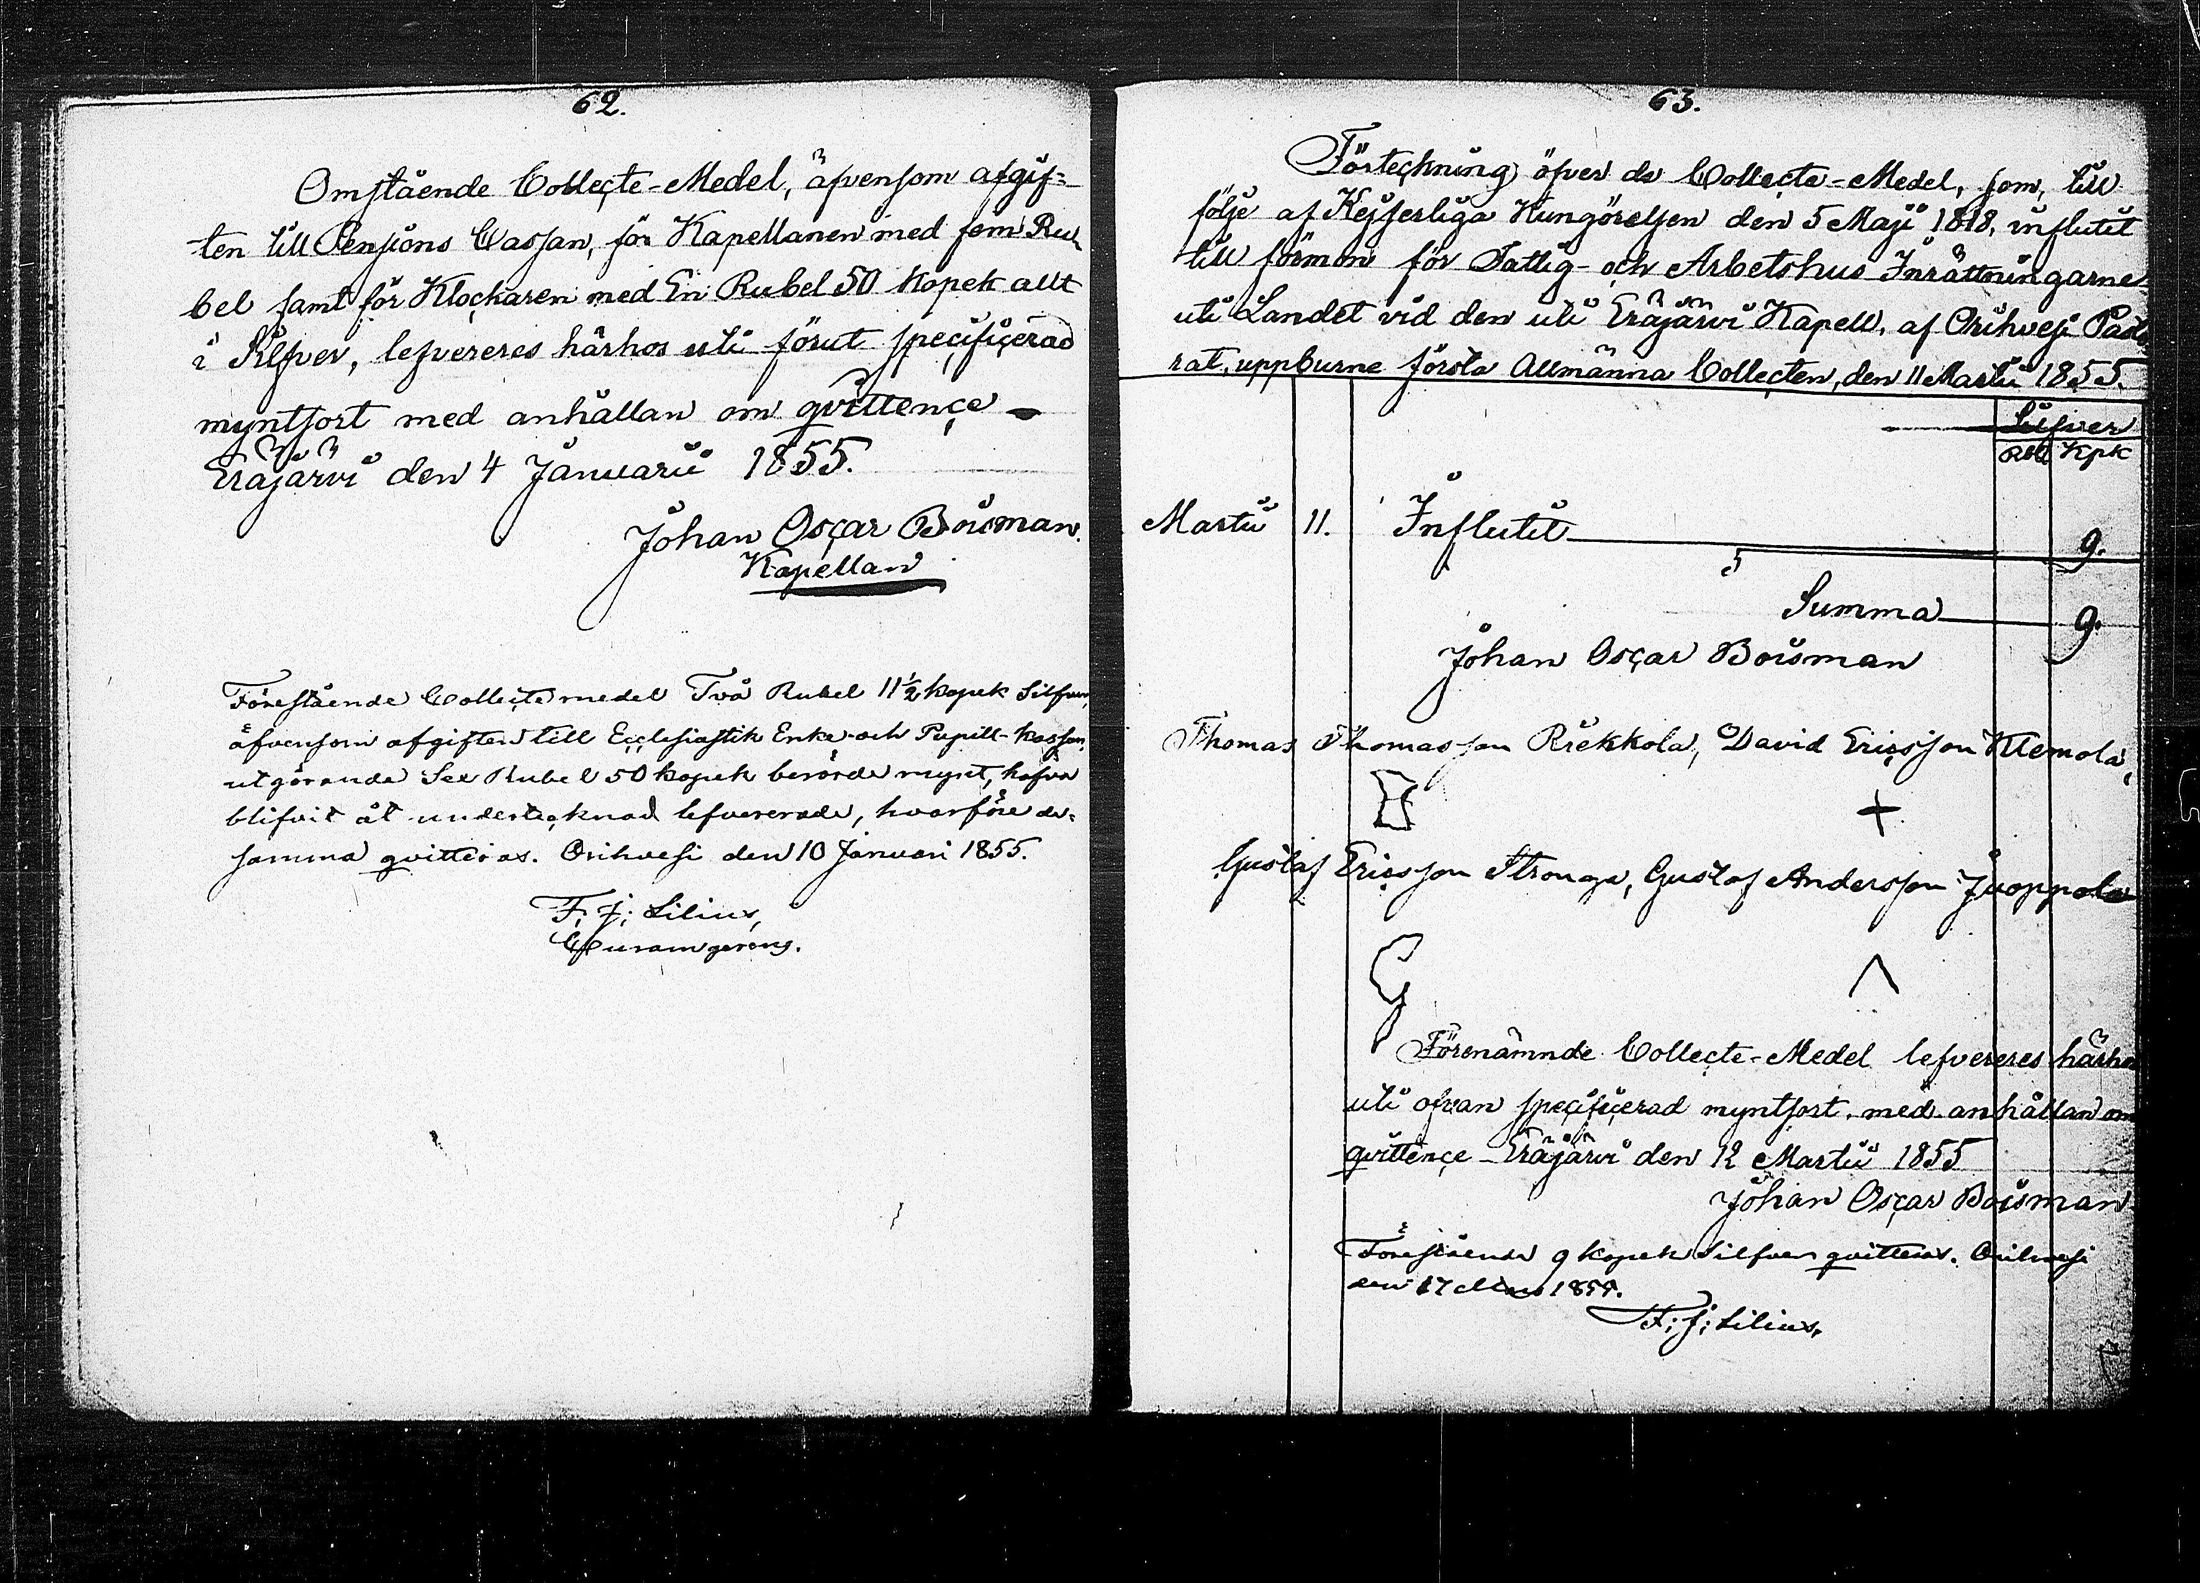 62.
Omstående Collecte-Medel, äfvensom afgif=
ten till Pensions Cassan, för Kapellanen med fem Ru=
bel samt för Klockaren med En Rubel 50 kopek allt
i Silfver, lefvereres härhos uti förut specificerad
myntsort med anhållan om qvittence
Eräjärvi den 4 Januarii 1855.
Johan Oscar Boisman.
Kapellan
Förestående Collectemedel Två Rubel 11½ kopek Silfver,
äfvensom afgiften till Ecclesiastik Enke- och Pupill-kassan,
utgörande Sex Rubel 50 kopek berörde mynt, hafva
blifvit åt undertecknad lefvererade, hvarföre de=
samma qvitteras. Orihvesi den 10 Januari 1855.
F. J. Lilius,
Curam gerens.
63.
Förteckning öfver de Collecte-Medel, som, till
följe af Kejserliga Kungörelsen den 5 Maji 1818, influtit
till förmon för Fattig- och Arbetshus Inrättningarne
uti Landet vid den uti Eräjärvi Kapell, af Orihvesi Pasto
rat, uppburne första Allmänna Collecten, den 11 Martii 1855.
Silfver
Rbl Kpk
Martii 11. Influtit 9.
Summa 9.
Johan Oscar Boisman
Thomas Thomasson Riekkola, David Ericsson Klemola,
Gustaf Ericsson Stronga, Gustaf Andersson Juoppola
Förenämnde Collecte-Medel lefvereres härhos
uti ofvan specificerad myntsort, med anhållan om
qvittence Eräjärvi den 12 Martii 1855
Johan Oscar Boisman
Förestående 9 kopek Silfver qvitteras. Orihvesi
den 17 Mars 1855.
F. J. Lilius.